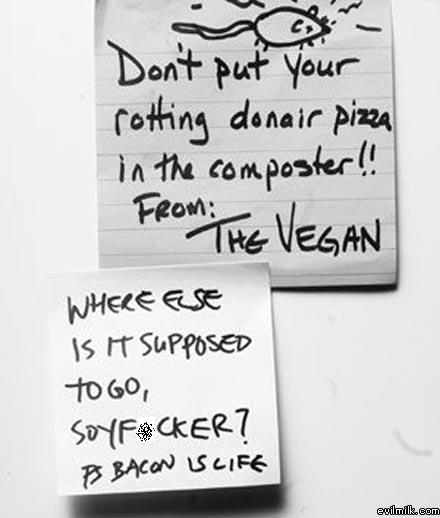 Don't put your
rotting donair pizza
in the composter!!
FROM:
THE VEGAN
WHERE ELSE
IS IT SUPPOSED
TO GO,
SOYF*CKER?
PS BACON IS LIFE
evilmilk.com